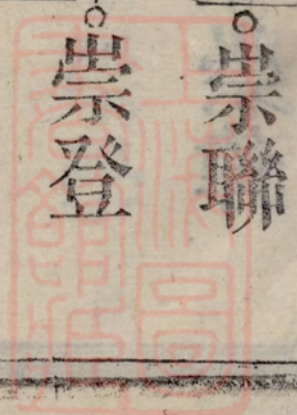 崇聯
崇登